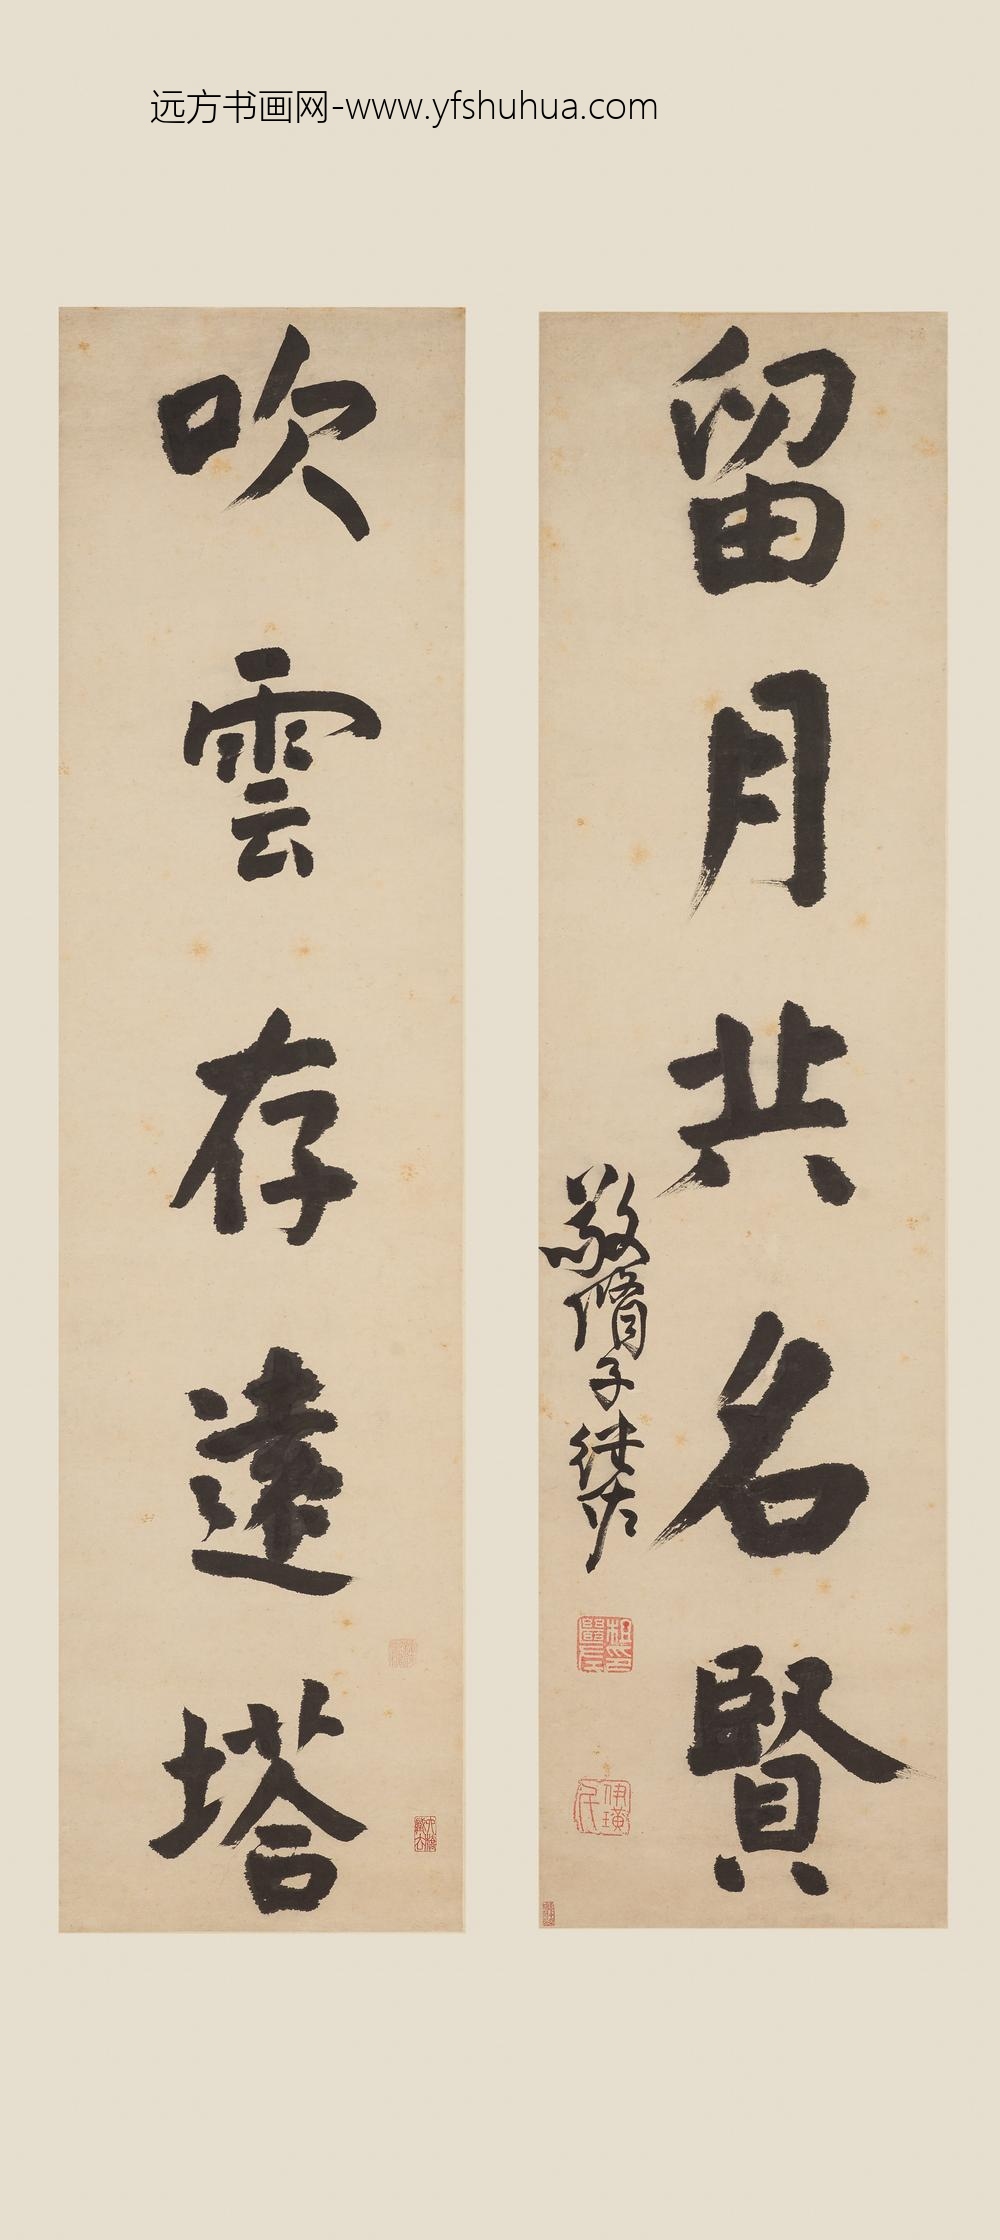 远方书画网-www.yfshuhua.com
留月共名賢
敬脩子継佐
吹雲存遠塔